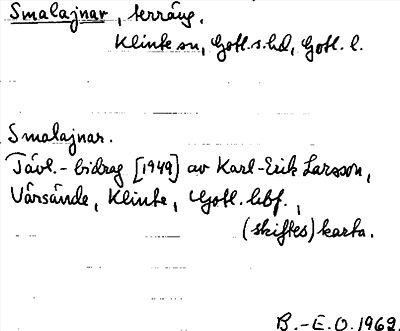 Smalajnar, terräng.
Klinte sn, Gotl. s. hd, Gotl. l.
Smalajnar.
Tävl.-bidrag [1949] av Karl-Erik Larsson,
Värsände, Klinte, Gotl. hbf.,
(skiftes)karta.
B.-E.O. 1962.